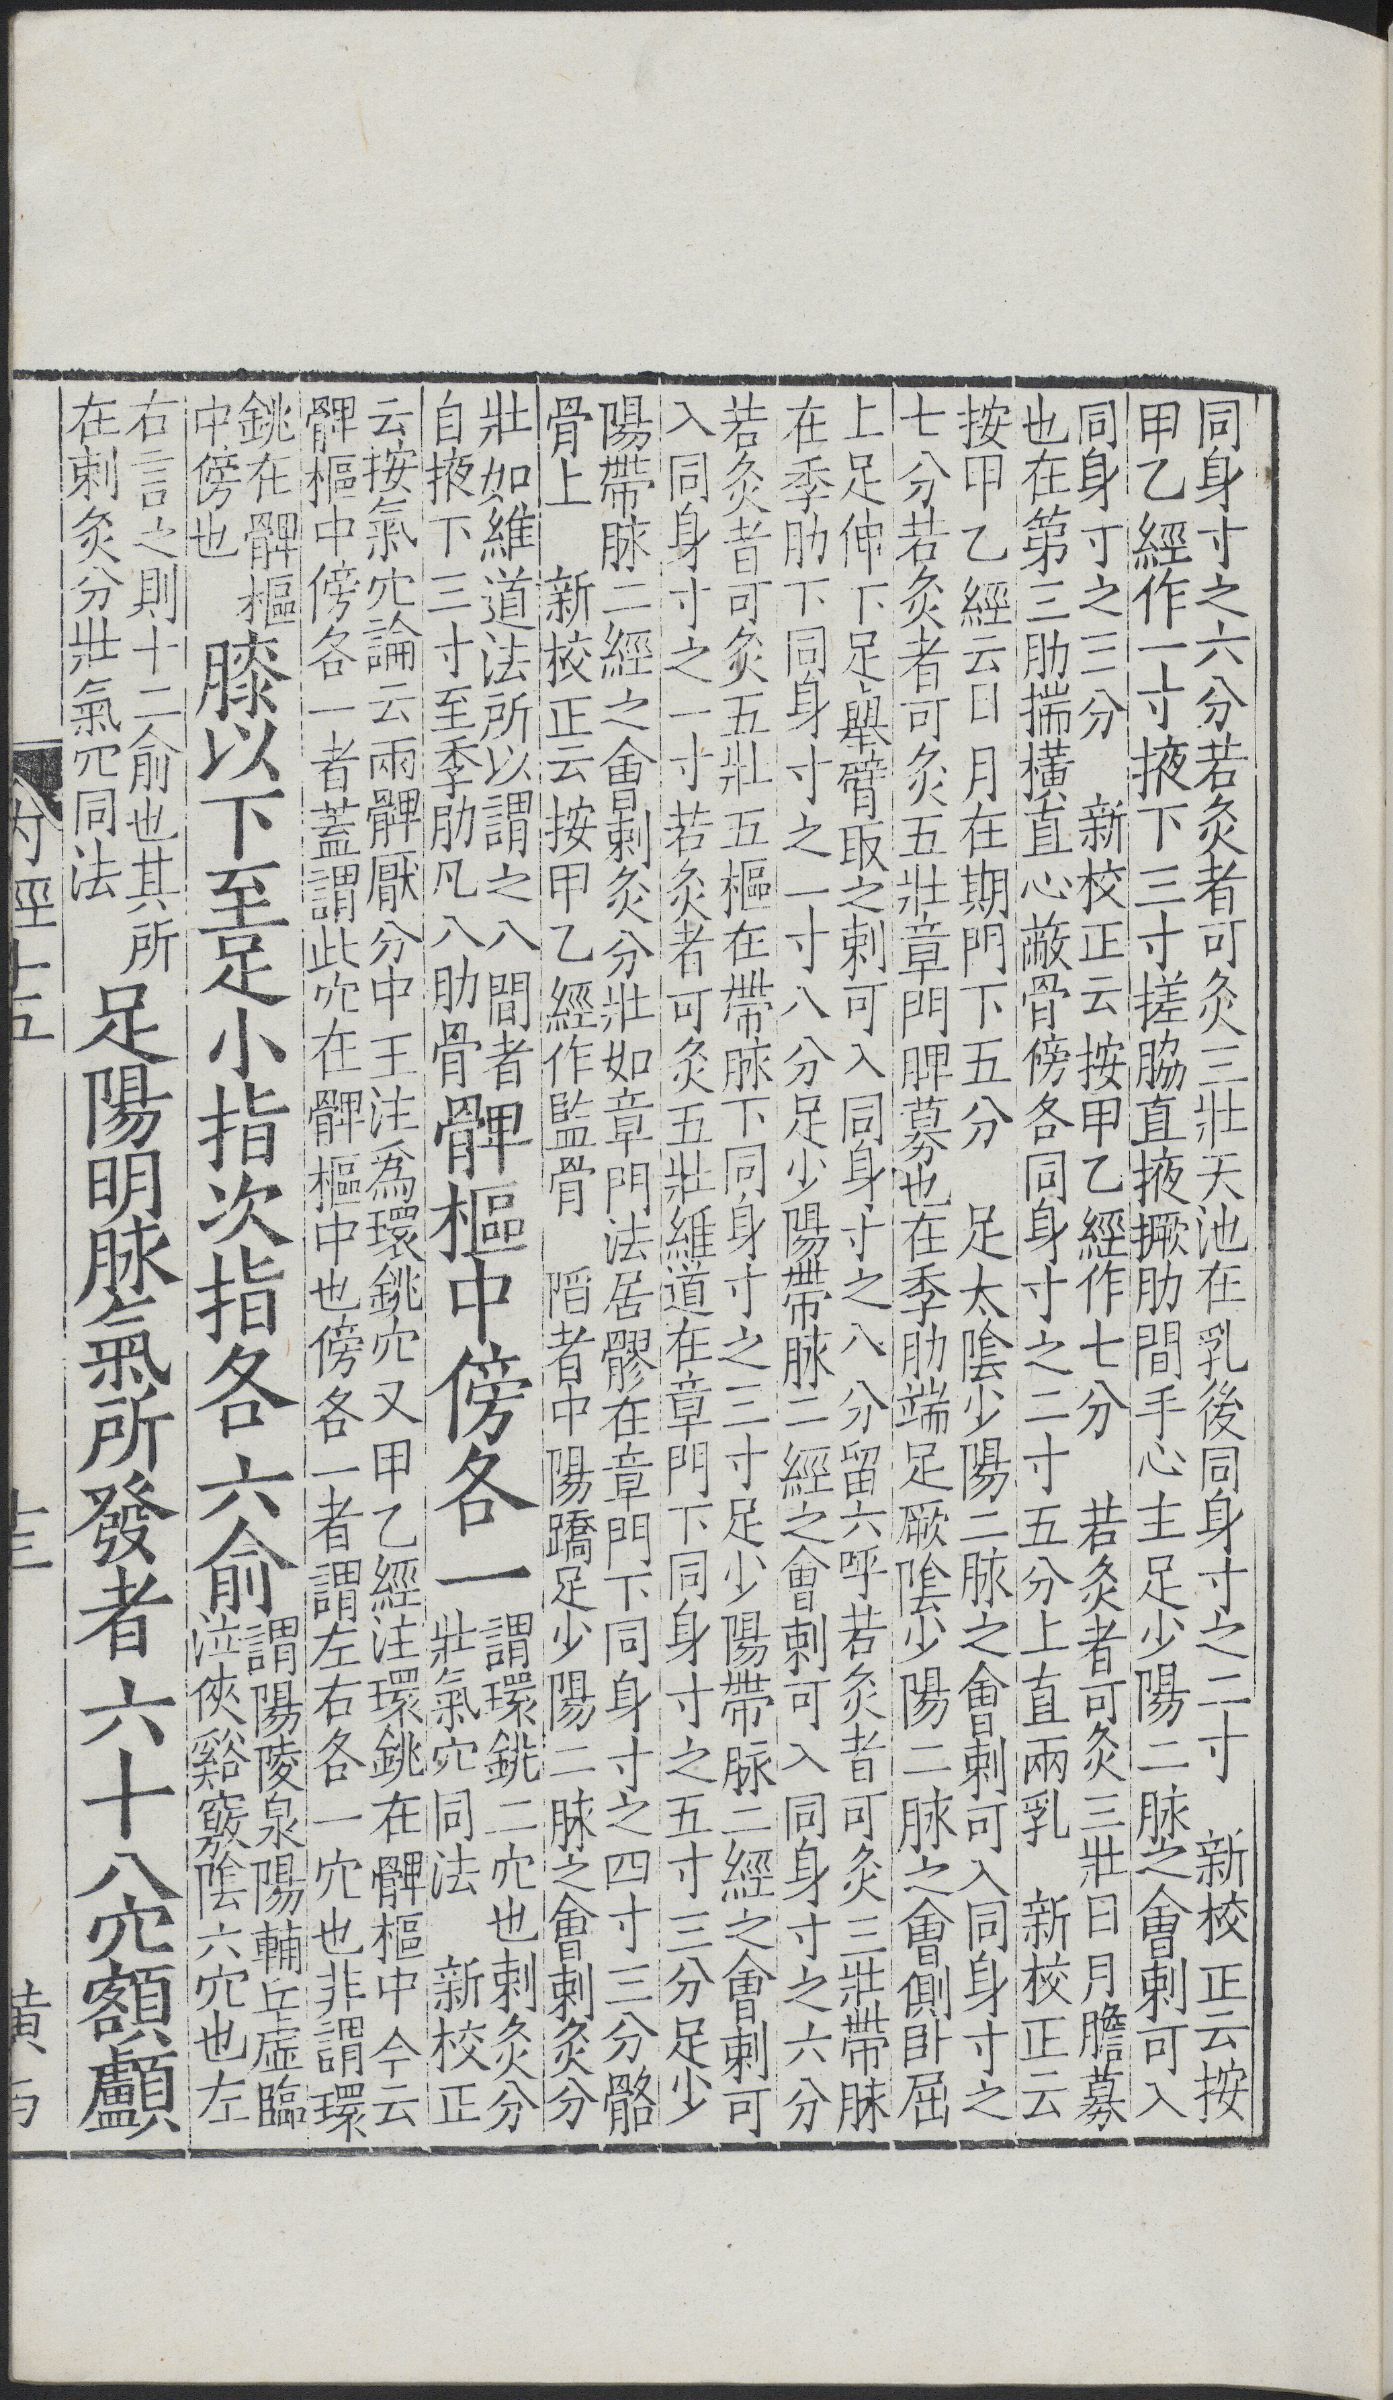 同身寸之六分若灸者可灸三壯天池在乳後同身寸之二寸　新校正云按
甲乙經作一寸掖下三寸搓脇直掖撅肋間手心主足少陽二脉之會刺可入
同身寸之三分　新校正云按甲乙經作七分　若灸者可灸三壯日月膽募
也在第三肋揣橫直心蔽骨傍各同身寸之二寸五分上直兩乳　新校正云
按甲乙經云日月在期門下五分　足太陰少陽二脉之會刺可入同身寸之
七分若灸者可灸五壯章門脾募也在季肋端足厥陰少陽二脉之會側臥屈
上足伸下足舉臂取之刺可入同身寸之八分留六呼若灸者可灸三壯帶脉
在季肋下同身寸之一寸八分足少陽帶脉二經之會刺可入同身寸之六分
若灸者可灸五壯五樞在帶脉下同身寸之三寸足少陽帶脉二經之會刺可
入同身寸之一寸若灸者可灸五壯維道在章門下同身寸之五寸三分足少
陽帶脉二經之會刺灸分壯如章門法居髎在章門下同身寸之四寸三分骼
骨上　新校正云按甲乙經作監骨　陷者中陽蹻足少陽二脉之會刺灸分
壯如維道法所以謂之八間者
自掖下三寸至季肋凡八肋骨
髀樞中傍各一
謂環銚二穴也刺灸分
壯氣穴同法　新校正
云按氣穴論云兩髀厭分中王注爲環銚穴又甲乙經注環銚在髀樞中今云
髀樞中傍各一者蓋謂此穴在髀樞中也傍各一者謂左右各一穴也非謂環
銚在髀樞
中傍也
膝以下至足小指次指各六俞
謂陽陵泉陽輔丘虛臨
泣俠谿竅陰六穴也左
右言之則十二俞也其所
在刺灸分壯氣穴同法
足陽明脉氣所發者六十八穴額顱
內經十五
十三